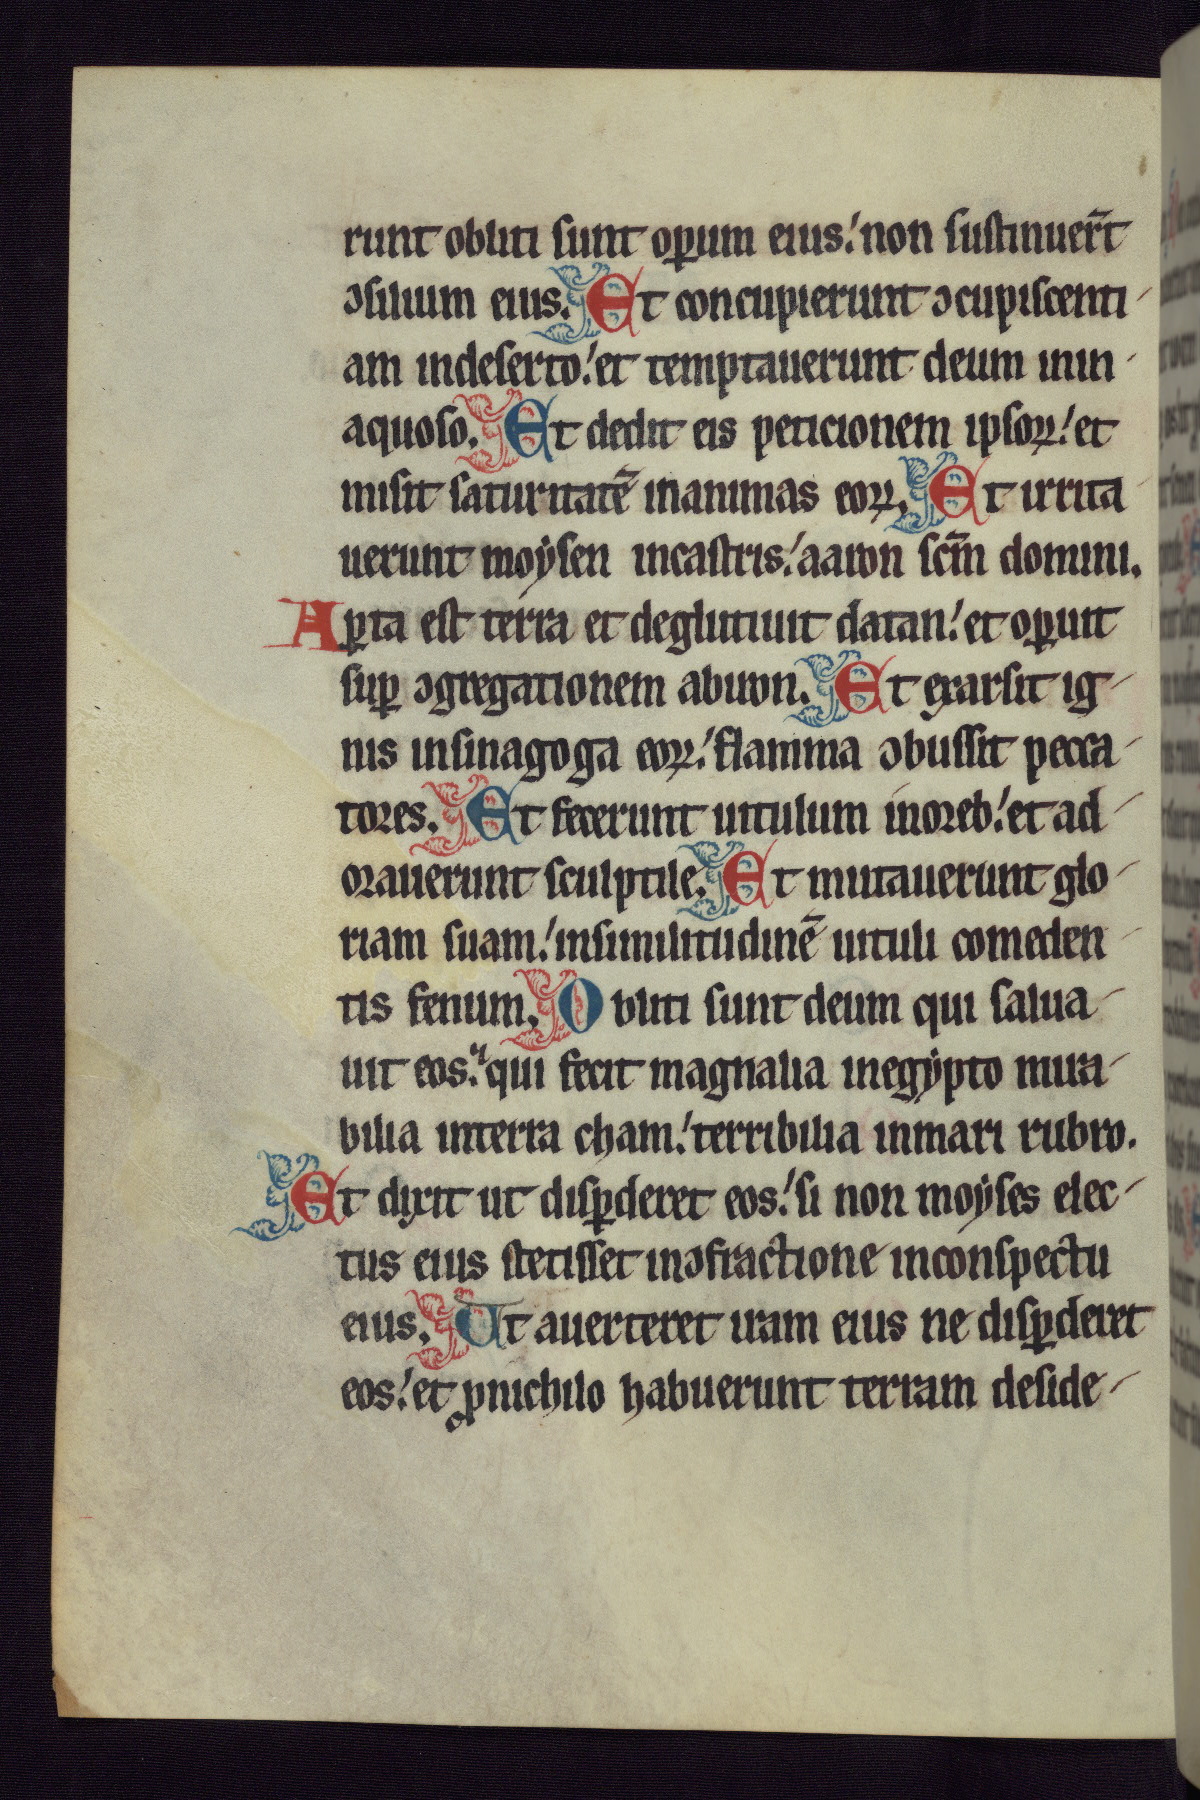 runt obliti sunt oꝑum eius.ʹ non sustinuer̄t
ɔsilium eius. Et concupierunt ɔcupiscenti-
am indeserto.ʹ et temptauerunt deum inin-
aquoso. Et dedit eis peticionem ipsoꝝ.ʹ et
misit saturitatē inanimas eoꝝ. Et irrita
uerunt moẏsen incastris.ʹ aaron sc̄m domini.
Aꝑta est terra et deglutiuit datan.ʹ et oꝑuit
suꝑ ɔgregationem abiron. Et exarsit ig-
nis insinagoga eoꝝ.ʹ flamma ɔbussit pecca-
tores. Et fecerunt uitulum inoreb.ʹ et ad-
orauerunt sculptile. Et mutauerunt glo-
riam suam.ʹ insimilitudinē uituli comeden-
tis fenum. Obliti sunt deum qui salua-
uit eos.ʹ qui fecit magnalia inegẏpto mira-
bilia interra cham.ʹ terribilia inmari rubro.
Et dixit ut disꝑderet eos.ʹ si non moẏses elec-
tus eius stetisset inɔfractione inconspectu
eius. Ut auerteret iram eius ne disꝑderet
eos.ʹ et ꝓnichilo habuerunt terram deside-